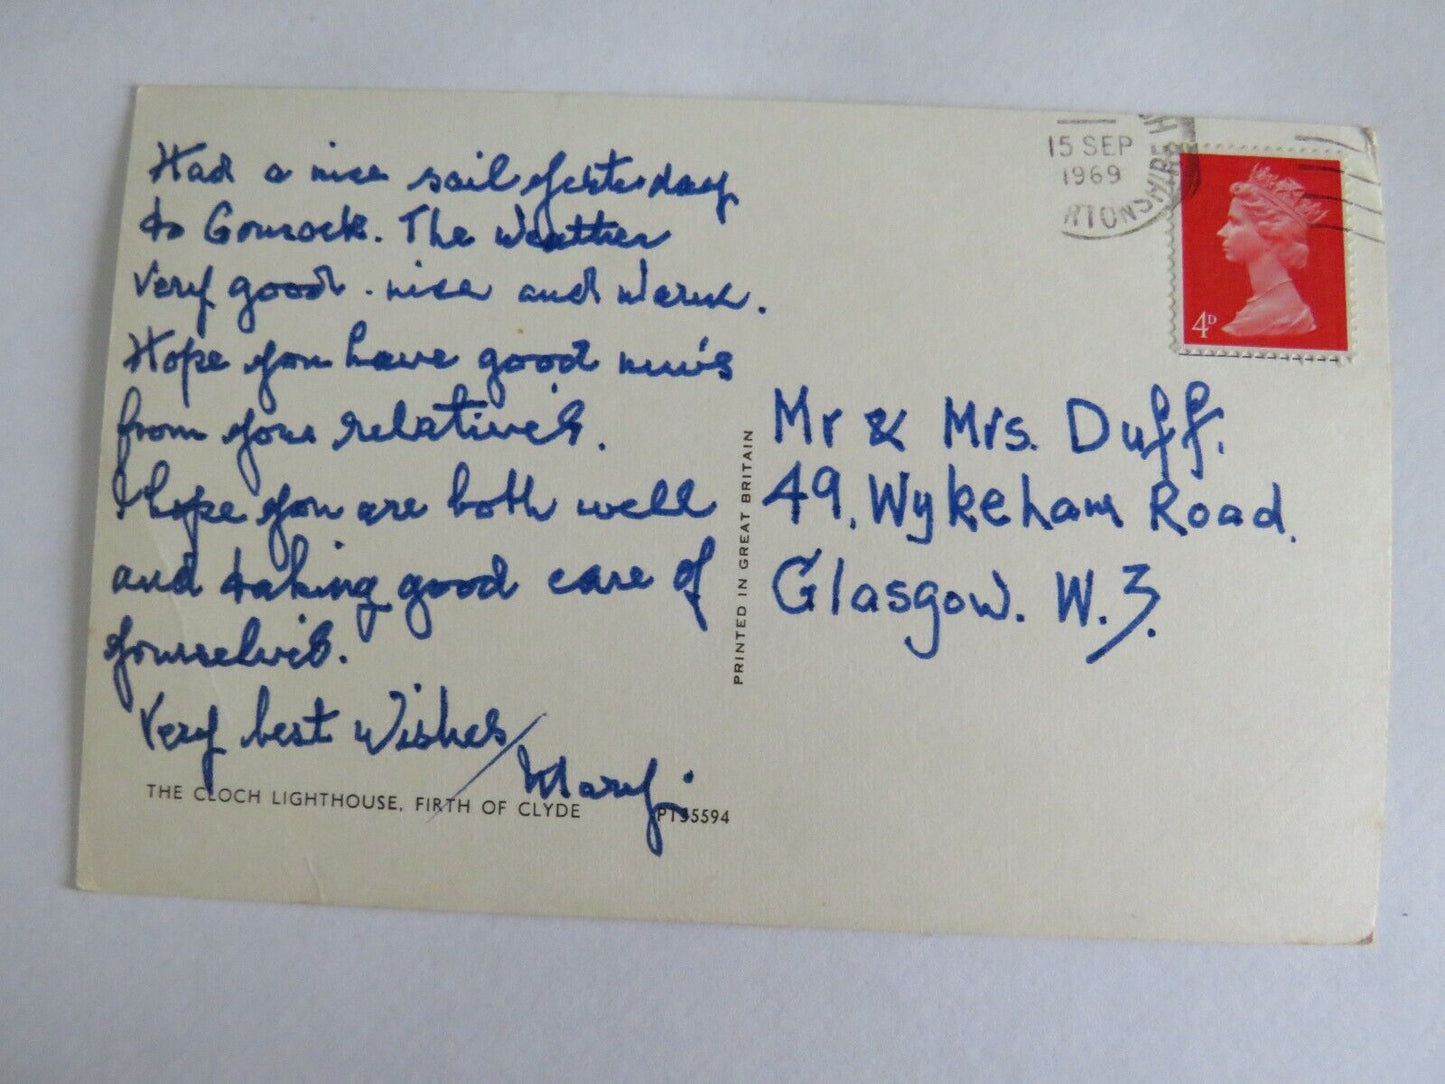 Had a nice sail yesterday
to Gourock. The Weather
Very good. nice and Warm.
Hope you have good news
from your relatives.
I hope you are both well
and taking good care of
yourselves.
Very best Wishes
Mary.
THE CLOCH LIGHTHOUSE, FIRTH OF CLYDE
PT35594
PRINTED IN GREAT BRITAIN
15 SEP
1969
4D
Mr & Mrs. Duff.
49, Wykeham Road.
Glasgow. W.3.